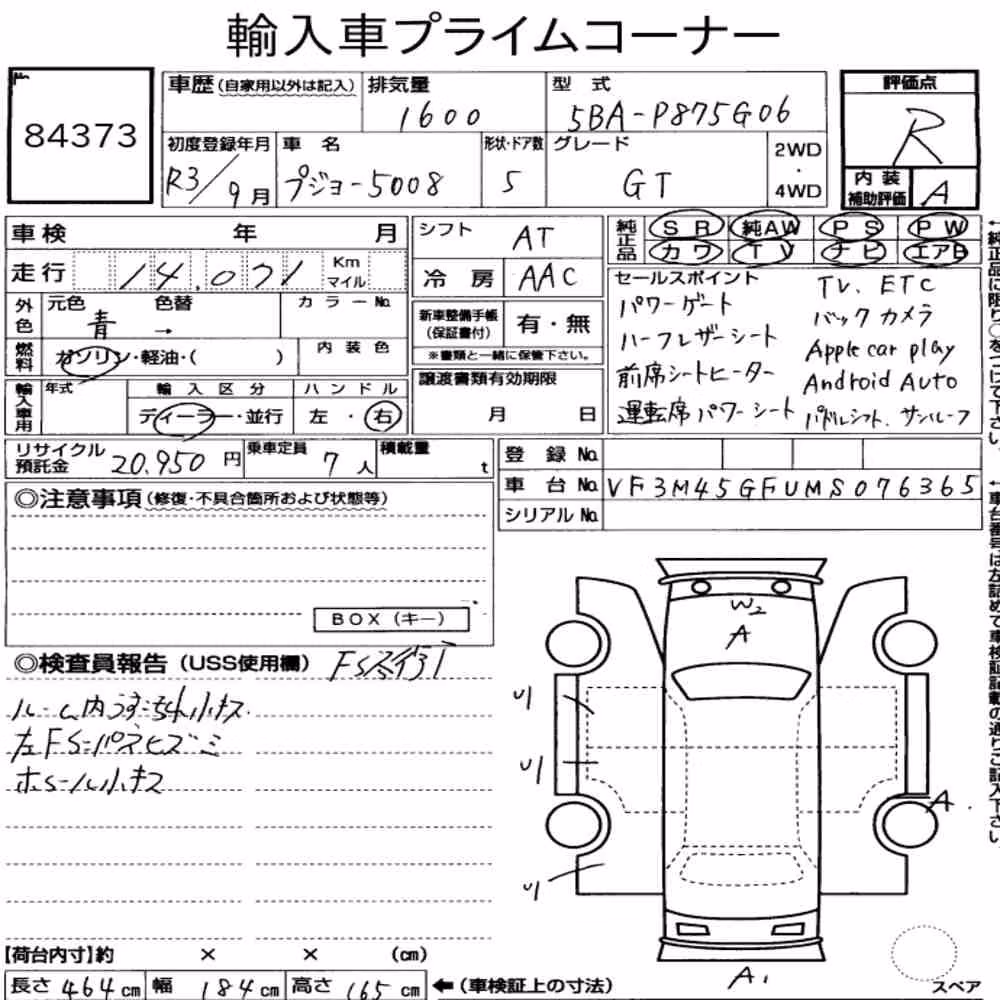 輸入車プライムコーナー
No.
84373
車歴 (自家用以外は記入)
排気量
1600
型 式
5BA-P875G06
評価点
R
内装補助評価
A
初度登録年月
R3/9月
車 名
プジョー5008
形状・ドア数
5
グレード
GT
2WD
・
4WD
車検 年 月
走行 14,071 Km マイル
外色
元色 青
色替 →
カラーNo.
燃料
ガソリン・軽油・( )
内装色
輸入車用
年式
輸入区分
ディーラー・並行
ハンドル
左・右
シフト AT
冷房 AAC
新車整備手帳(保証書付) 有・無
※書類と一緒に保管下さい。
譲渡書類有効期限
月 日
純正品
SR 純AW PS PW
カワ TV ナビ エアB
セールスポイント
パワーゲート
ハーフレザーシート
前席シートヒーター
運転席パワーシート
TV. ETC
バックカメラ
Apple car play
Android Auto
パドルシフト. サンルーフ
←純正品に限り○をつけて下さい。
リサイクル預託金 20,950円
乗車定員 7人
積載量 t
登録No.
車台No. VF3M45GFUMS076365
シリアルNo.
←車台番号は左詰めで車検証記載の通りご記入下さい。
◎注意事項 (修復・不具合箇所および状態等)
BOX (キー)
◎検査員報告 (USS使用欄)
ルーム内うすごれ小キズ
ホイール小キズ
W2
A
リ
リ
A.
リ
A1
【荷台内寸】約 × × (cm)
長さ 464cm 幅 184cm 高さ 165cm ←(車検証上の寸法)
スペア